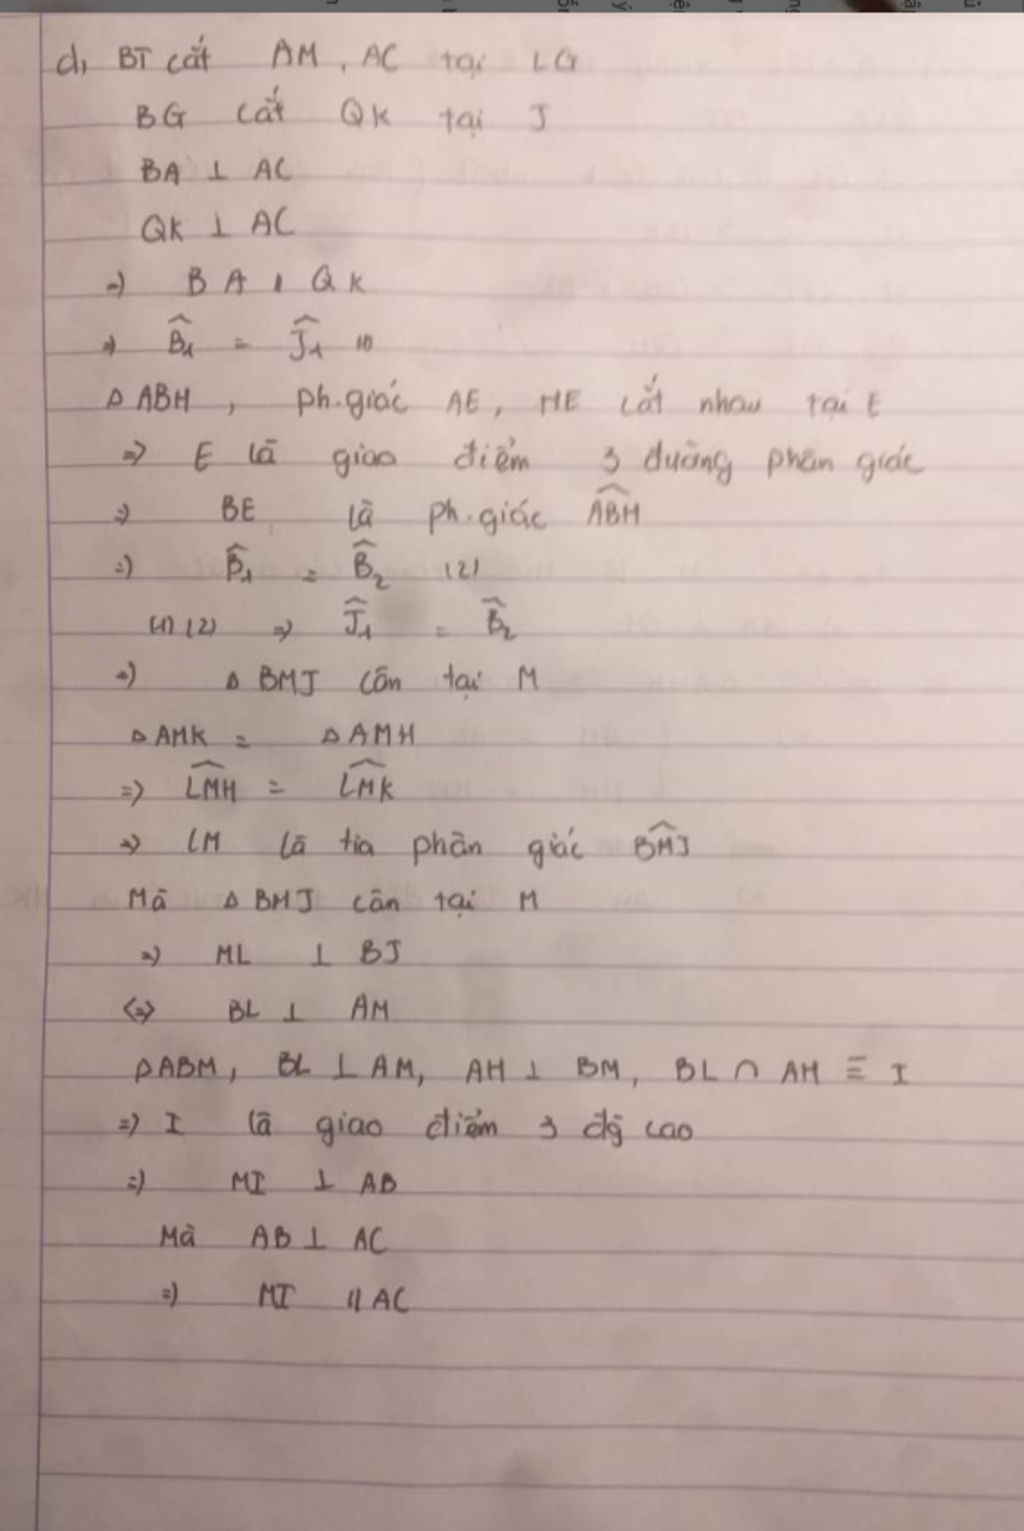 d, BI cắt AM, AC tại L G
BG cắt QK tại J
BA ⊥ AC
QK ⊥ AC
=) BA // QK
=) B̂₁ = Ĵ₁ (1)
Δ ABH, ph.giác AE, HE cắt nhau tại E
=> E là giao điểm 3 đường phân giác
=> BE là ph.giác ÂBH
=) B̂₁ = B̂₂ (2)
(1) (2) => Ĵ₁ = B̂₂
=) Δ BMJ cân tại M
Δ AMK = Δ AMH
=> LM̂H = LM̂K
=> LM là tia phân giác BM̂J
Mà Δ BMJ cân tại M
=) ML ⊥ BJ
<=> BL ⊥ AM
Δ ABM, BL ⊥ AM, AH ⊥ BM, BL ∩ AH ≡ I
=) I là giao điểm 3 đg cao
=) MI ⊥ AB
Mà AB ⊥ AC
=) MI // AC